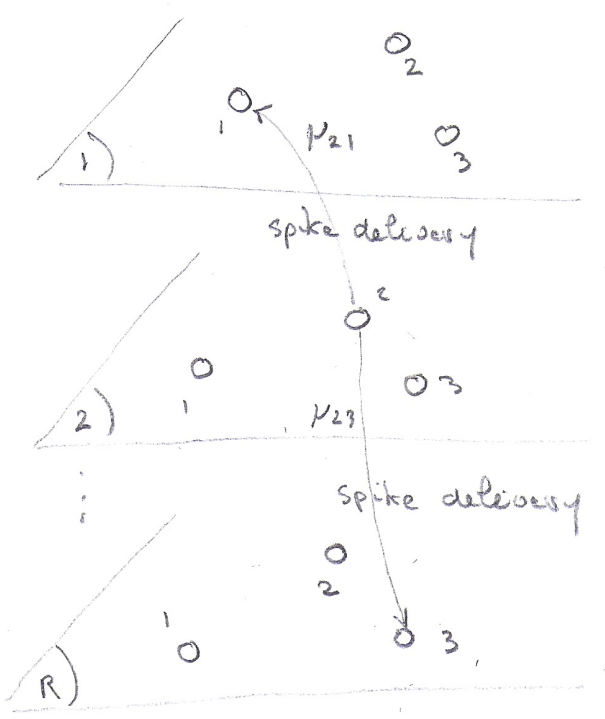 2
1
μ21
3
1)
spike delivery
2
3
1
2)
μ23
spike delivery
2
1
3
R)